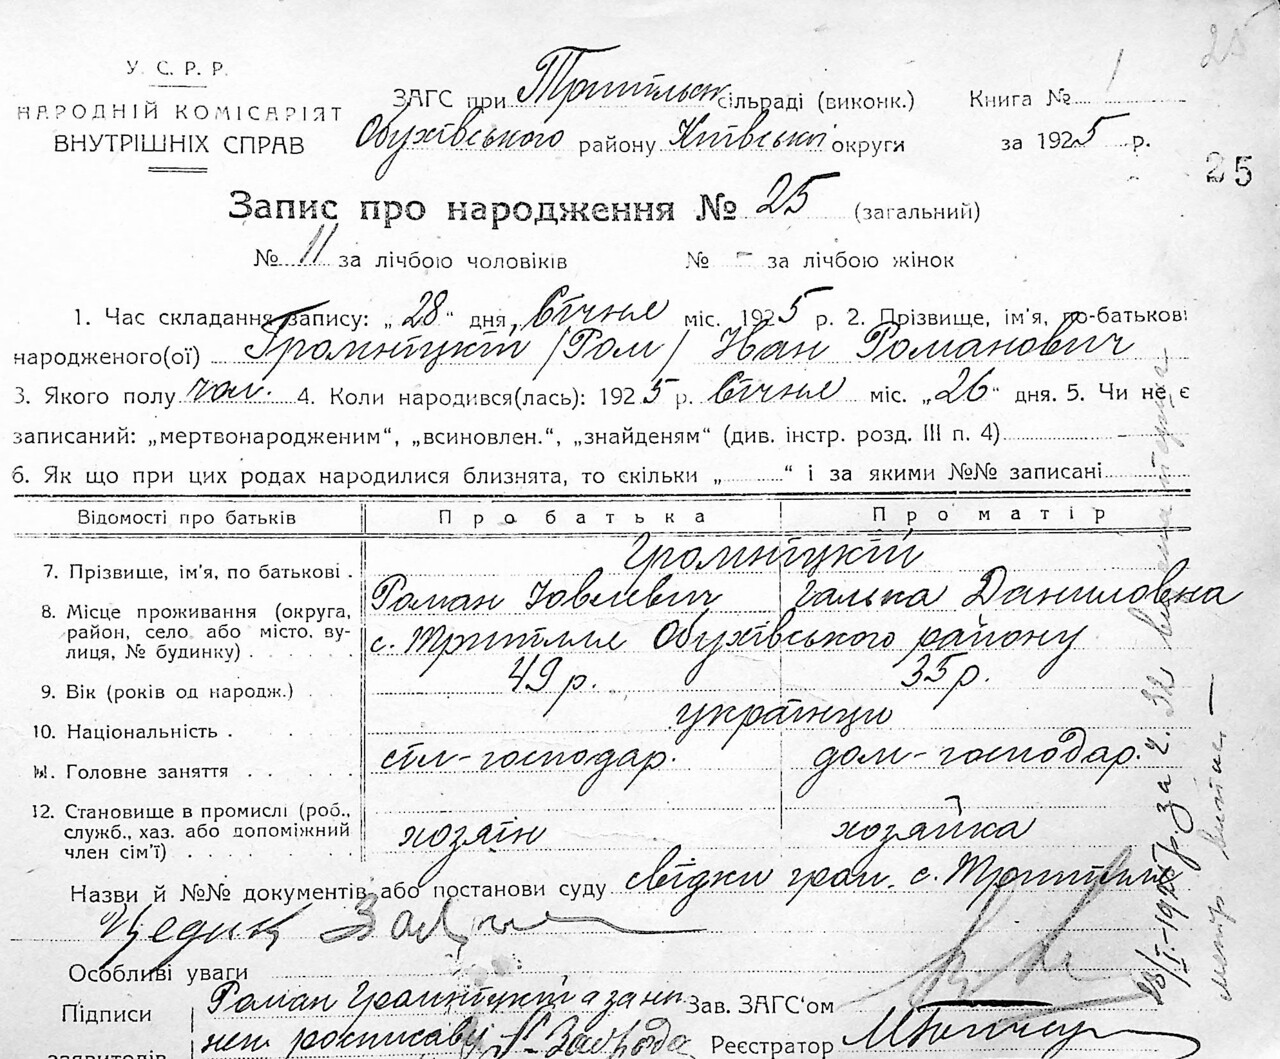 25
У. С. Р. Р.
НАРОДНІЙ КОМІСАРІЯТ
ВНУТРІШНІХ СПРАВ
ЗАГС при Трипільск сільраді (виконк.) Книга № 1
Обухівського району Київської округи за 1925 р.
25
Запис про народження № 25 (загальний)
№ 11 за лічбою чоловіків № - за лічбою жінок
1. Час складання запису: „28" дня Січня міс. 1925 р. 2. Прізвище, ім'я, по-батькові
народженого(ої) Громніцкій /Ром/ Іван Романович
3. Якого полу чол. 4. Коли народився(лась): 1925 р. Січня міс. „26" дня. 5. Чи не є
записаний: „мертвонародженим", „всиновлен.", „знайденям" (див. інстр. розд. III п. 4)
6. Як що при цих родах народилися близнята, то скільки „ " і за якими №№ записані
Відомості про батьків Про батька Про матір
7. Прізвище, ім'я, по батькові . Громніцкій
Роман Іовлевич Галька Даниловна
8. Місце проживання (округа, район, село або місто, вулиця, № будинку) . с. Трипілля Обухівського району
9. Вік (років од народж.) 49 р. 35 р.
10. Національність . українци
11. Головне заняття сіл-господар. дом-господар.
12. Становище в промислі (роб., служб., хаз. або допоміжний член сім'ї) хозяін хозяйка
Назви й №№ документів або постанови суду свідки гром. с. Трипілля
Особливі уваги
Підписи Роман Громніцкій а за Зав. ЗАГС'ом
заявителів Реєстратор